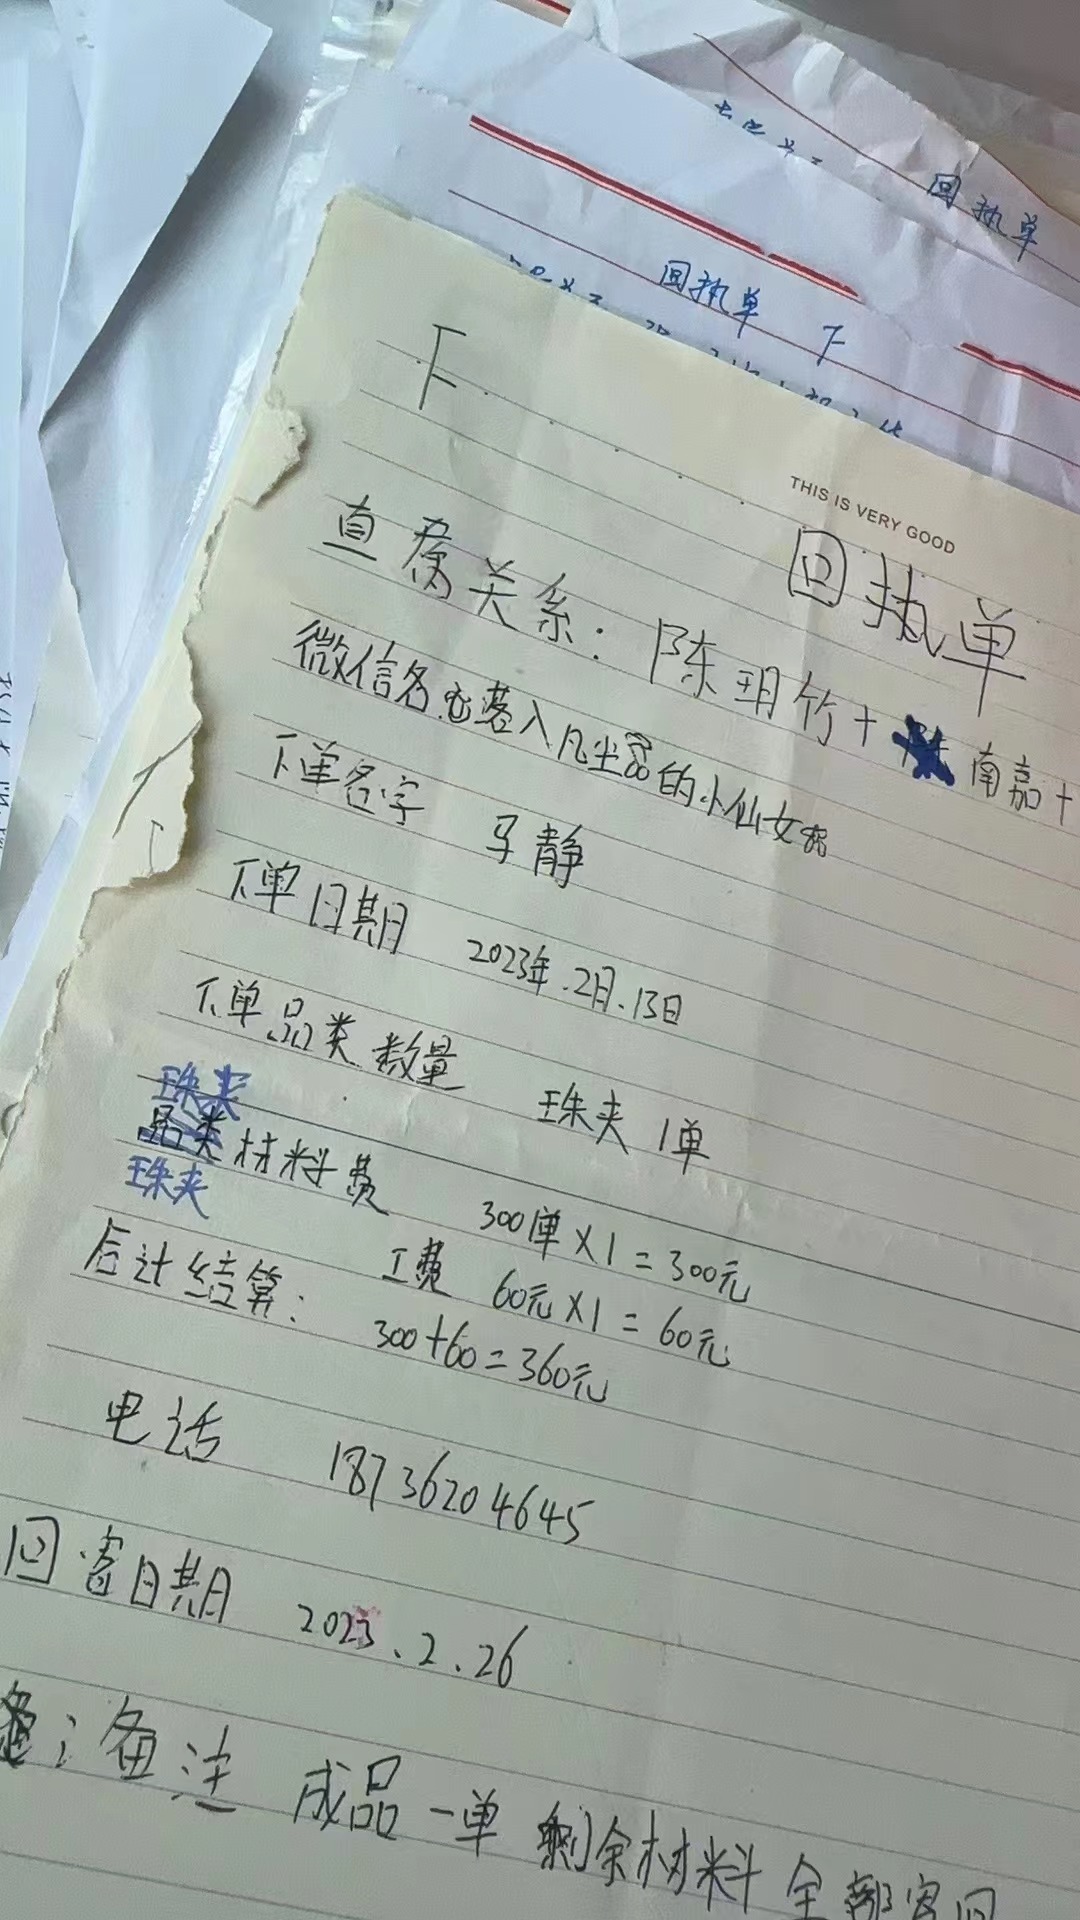 回执单
回执单 下
下
THIS IS VERY GOOD
回执单
直属关系：陈玥竹+ 南嘉+
微信名 落入凡尘 的小仙女
下单名字 马静
下单日期 2023年.2月.13日
下单品类数量 珠夹 1单
珠夹
品类材料费 300/单×1=300元
珠夹
工费 60元×1=60元
合计结算： 300+60=360元
电话 18736204645
回寄日期 2023.2.26
备注 成品一单 剩余材料全部寄回